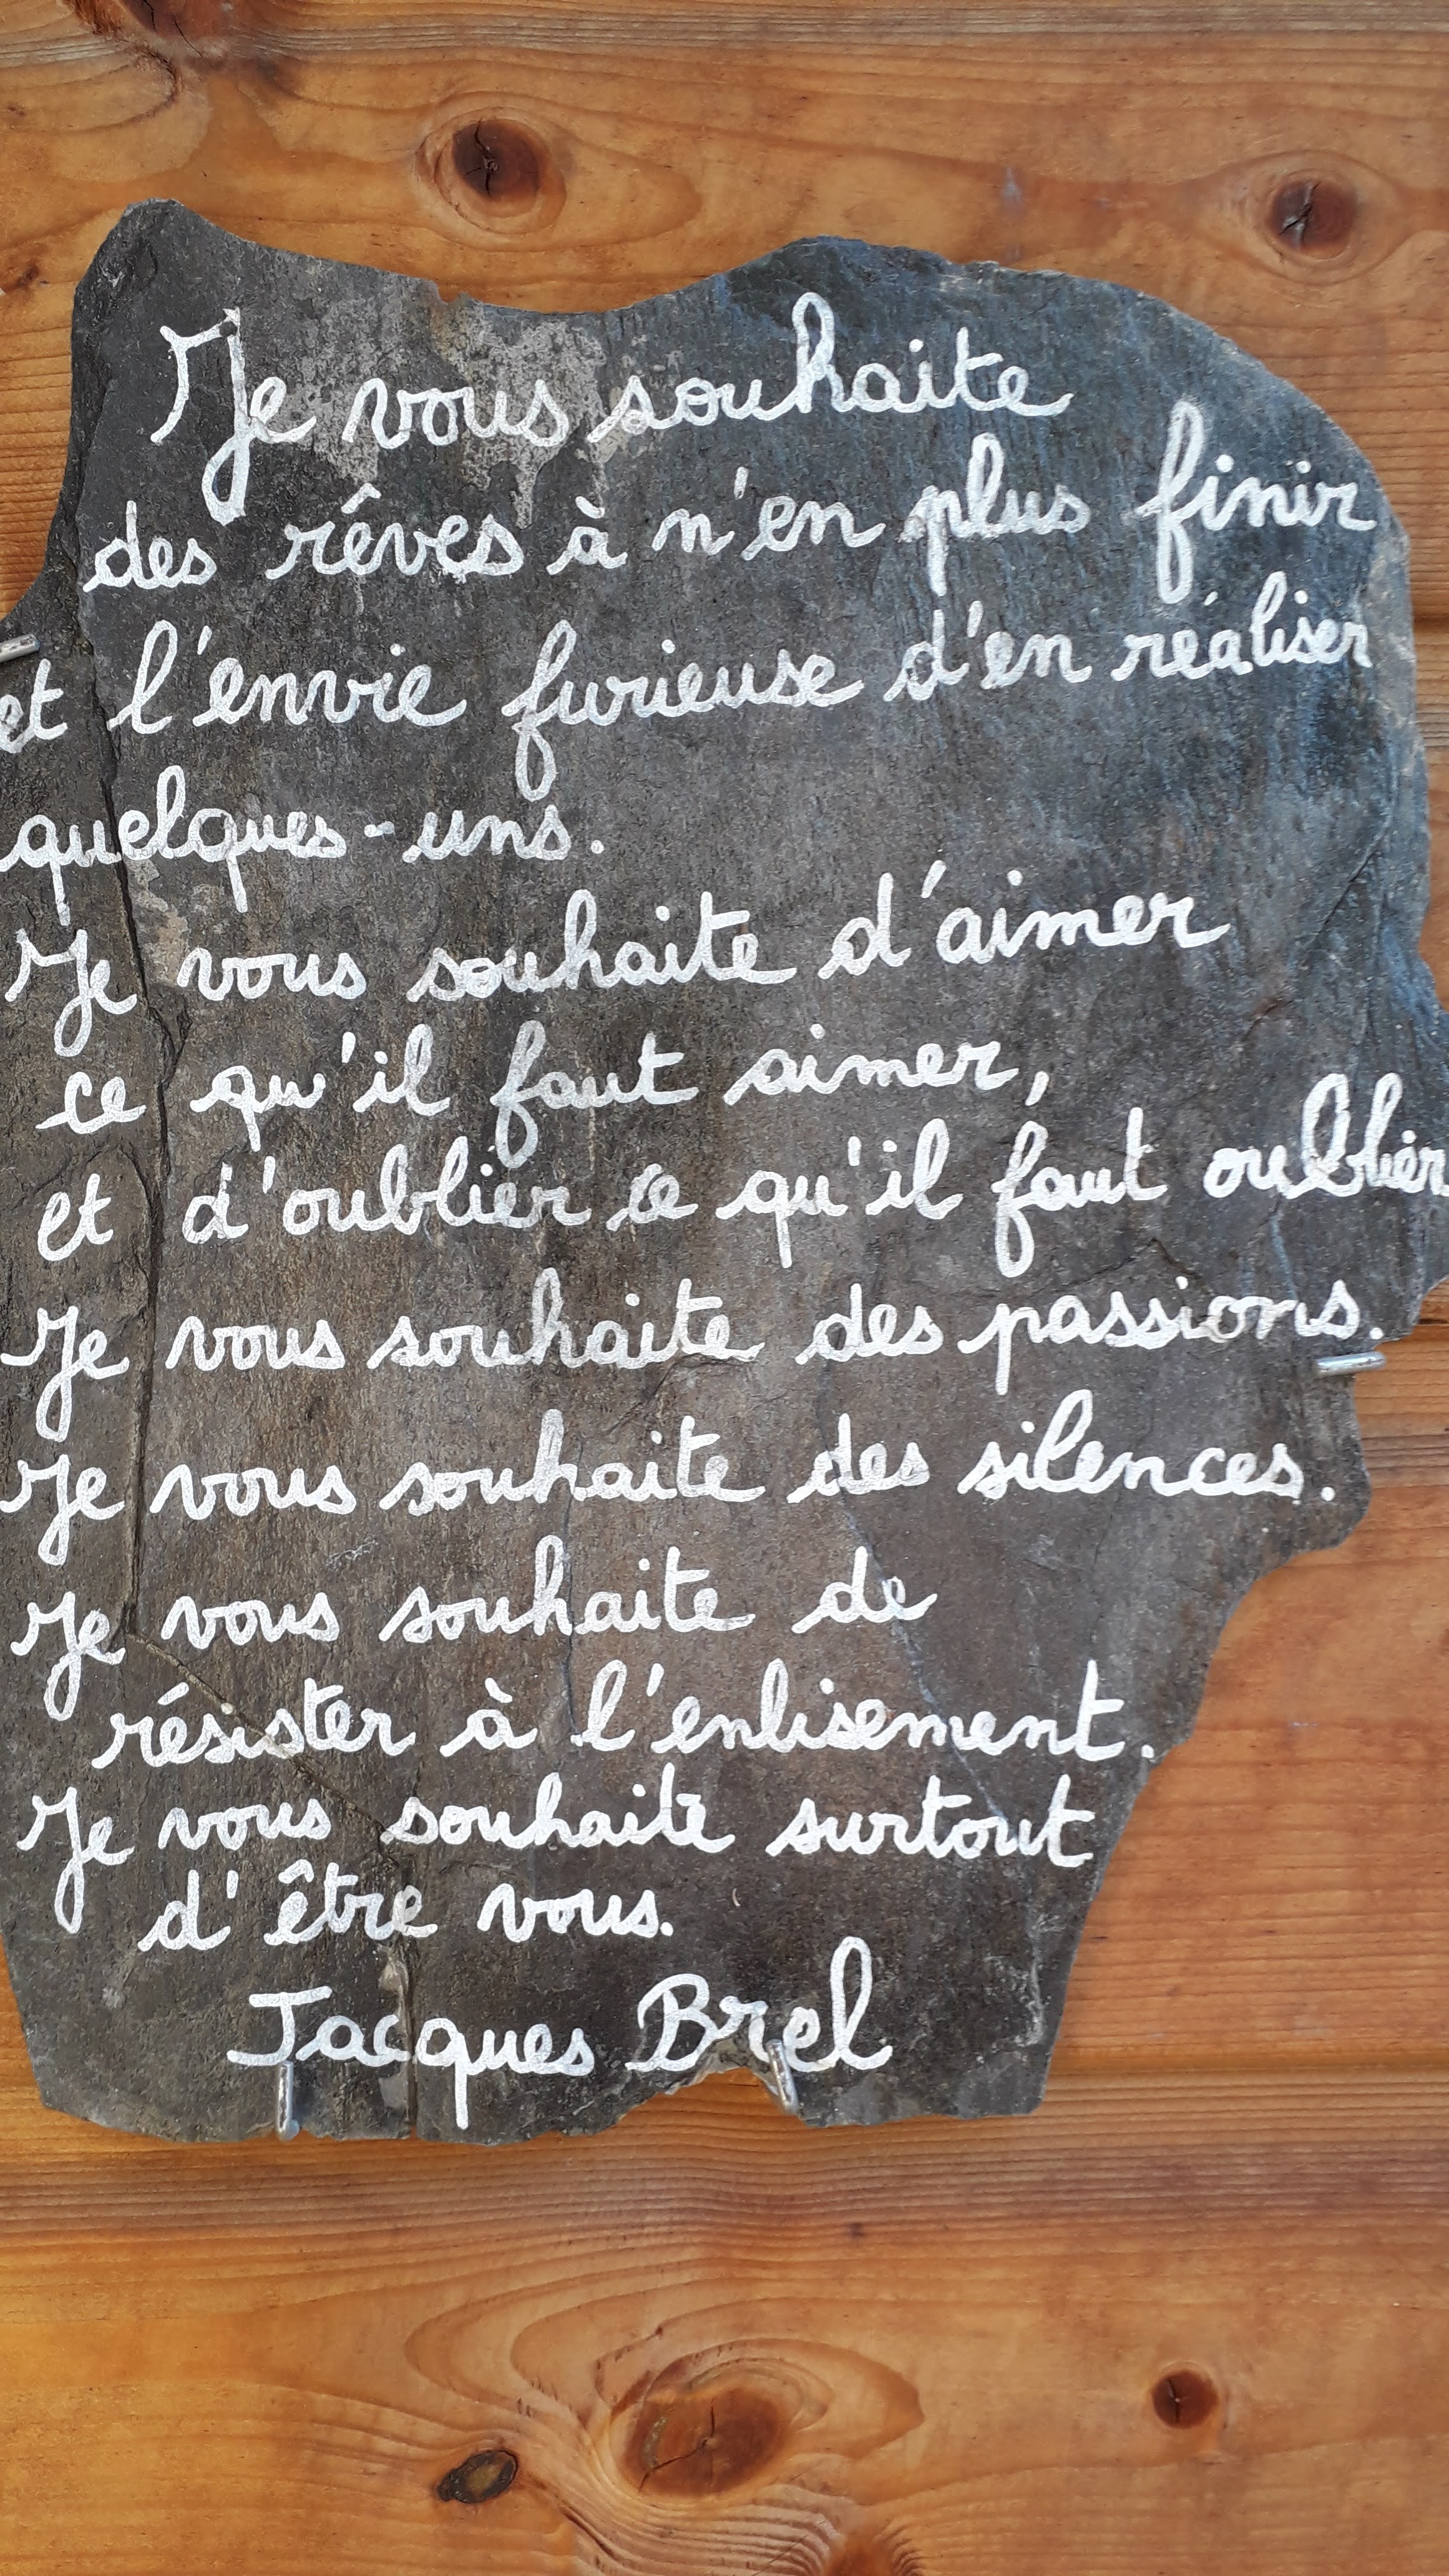 Je vous souhaite
des réves à n'en plus finir
et l'envie furieuse d'en réaliser
quelques-uns.
Je vous souhaite d'aimer
ce qu'il faut aimer,
et d'oublier ce qu'il faut oublier
Je vous souhaite des passions.
Je vous souhaite des silences.
Je vous souhaite de
résister à l'enlisement.
Je vous souhaite surtout
d'être vous.
Jacques Brel